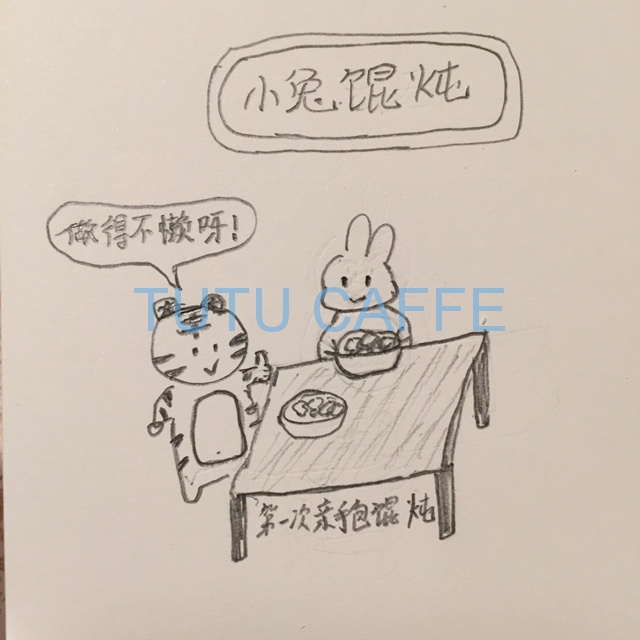 小兔馄炖
做得不懒呀!
TUTU CAFFE
第一次亲手包馄炖